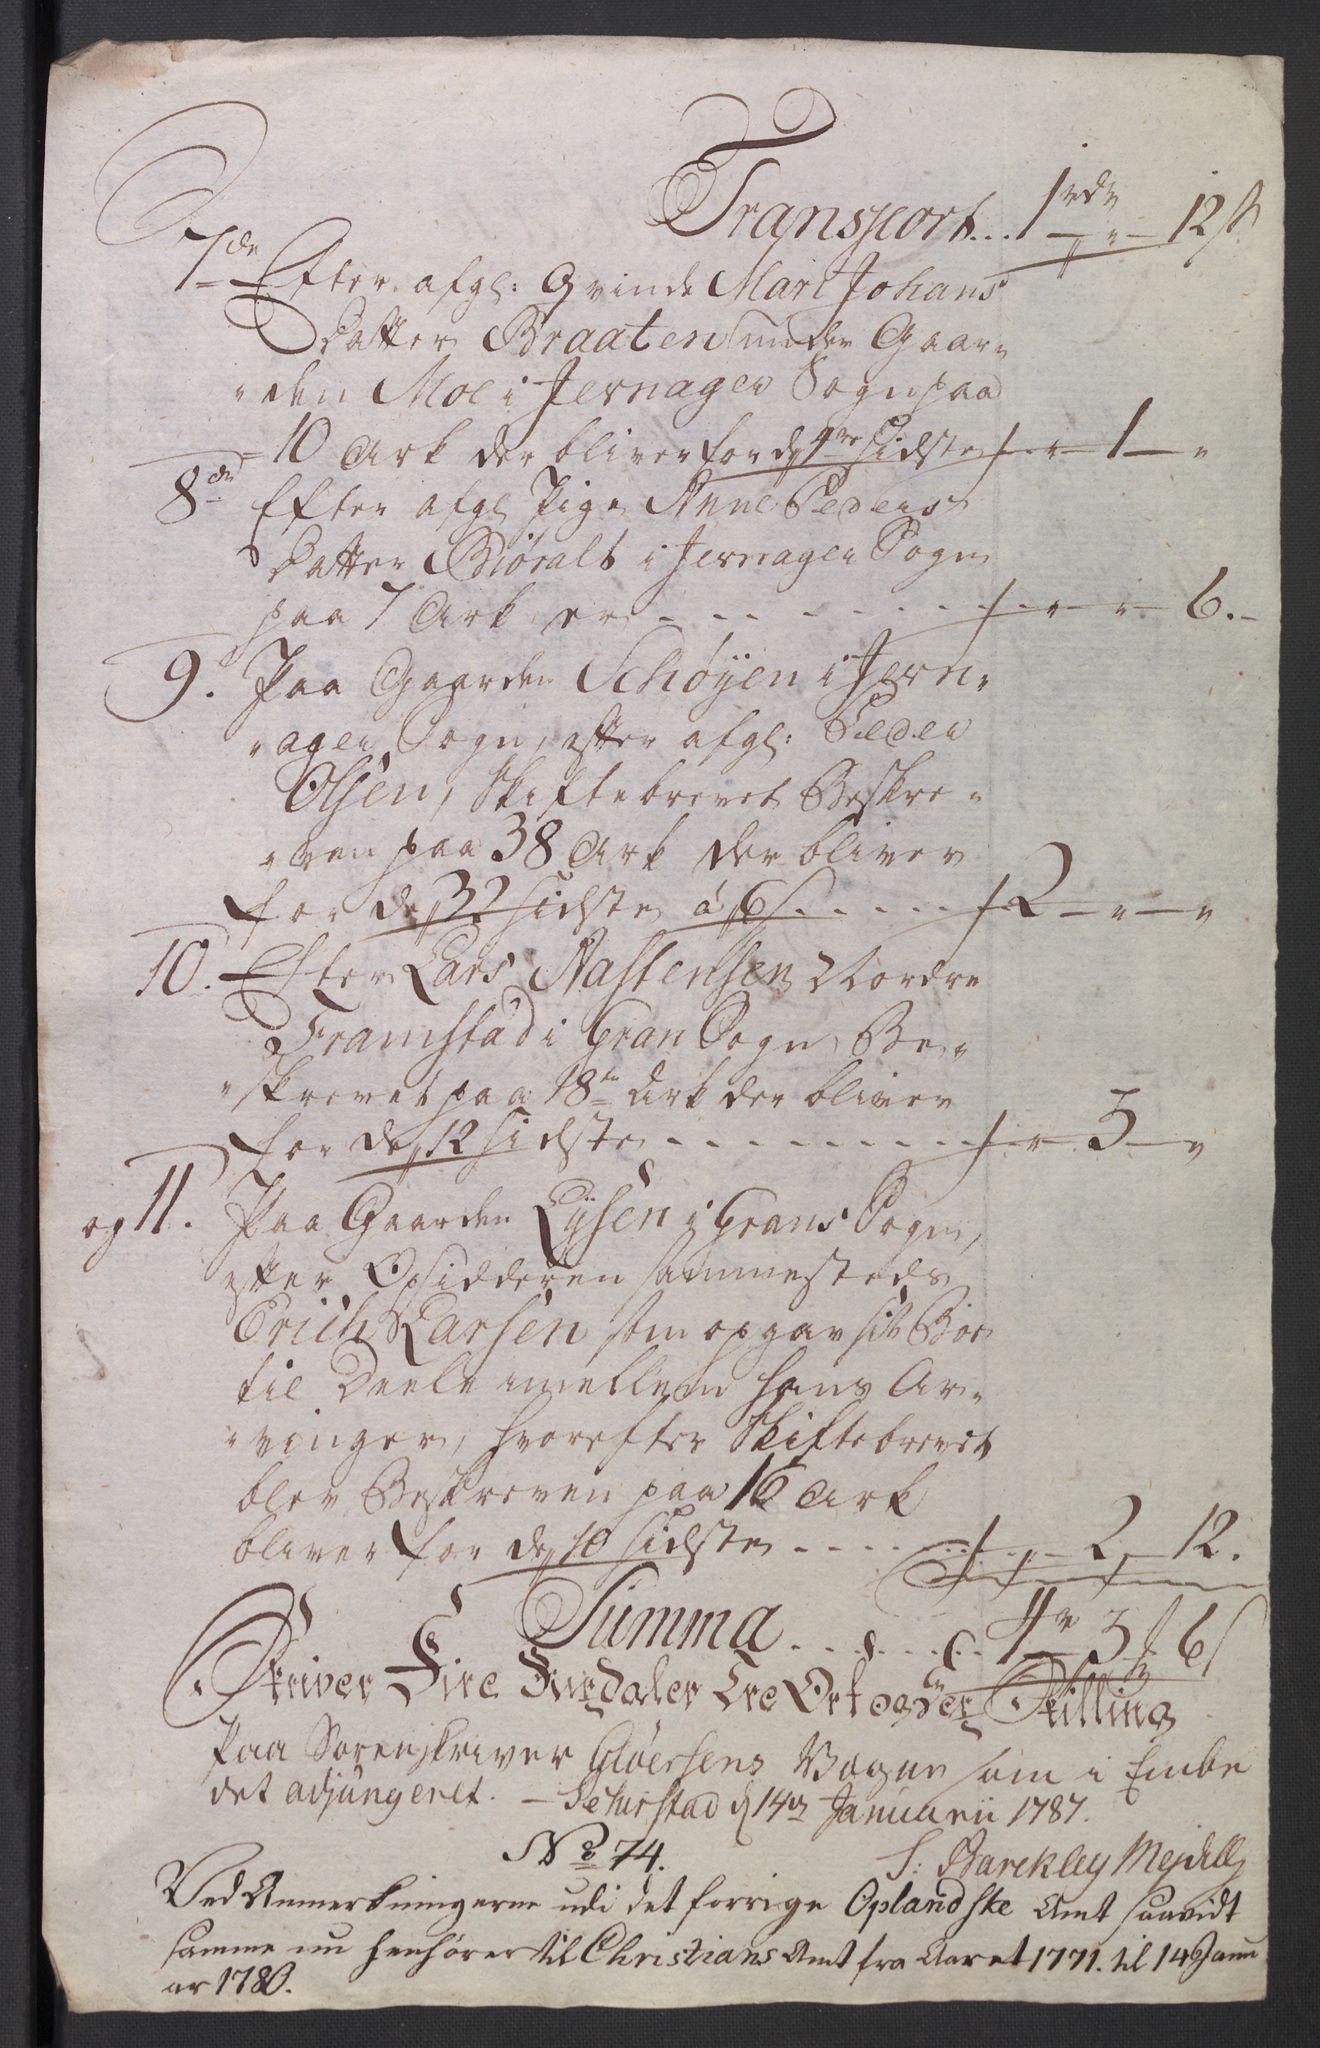 Transport... 1 rdr — " — 12 s.
7de Efter afgl: Qvinde Mari Johans
Datter Braaten under Gaar-
den Moe i Jevnager Sogn paa
10 Ark der bliver for de 4re sidste - " - 1 - "
8de Efter afgl. Pige Anne Peders
Datter Biøralt i Jevnager Sogn
paa 7 Ark er - - - - - - - " - " - 6. -
9. Paa Gaarden Schøyen i Jevn-
ager Sogn, efter afgl: Peder
Olsen, Skiftebrevet Beskre-
ven paa 38 Ark der bliver
for de 32 sidste á 6 s. . . . . . 2 - " - "
10. Efter Lars Nastensen Nordre
Framstad i Gran Sogn, Be-
skrevet paa 18 Ark der bliver
for de 12 sidste - - - - - - - " - 3 - "
og 11. Paa Gaarden Lysen i Grans Sogn,
efter Opsidderen sammesteds
Erich Larsen som opgav sit Boe
til Deele imellem hans Ar-
vinger, hvorefter Skiftebrevet
blev Beskreven paa 16 Ark
bliver for de 10 sidste . . . . . . . " - 2 - 12.
Summa . . . . . 4 r 3 6 s
Skriver Fire Rixdaler Tre Ort og Sex Skilling
Paa Sorenskriver Gløersens Vegne som i Embe
det adjungeret. — Schirstad d 14de Januarii 1787.
S: Barckley Mejdell
No 74.
Ved Anmerkningerne udi det forrige Oplandske Amt saavidt
samme nu henhører til Christians Amt fra Aaret 1771. til 14 Janu
ar 1780.